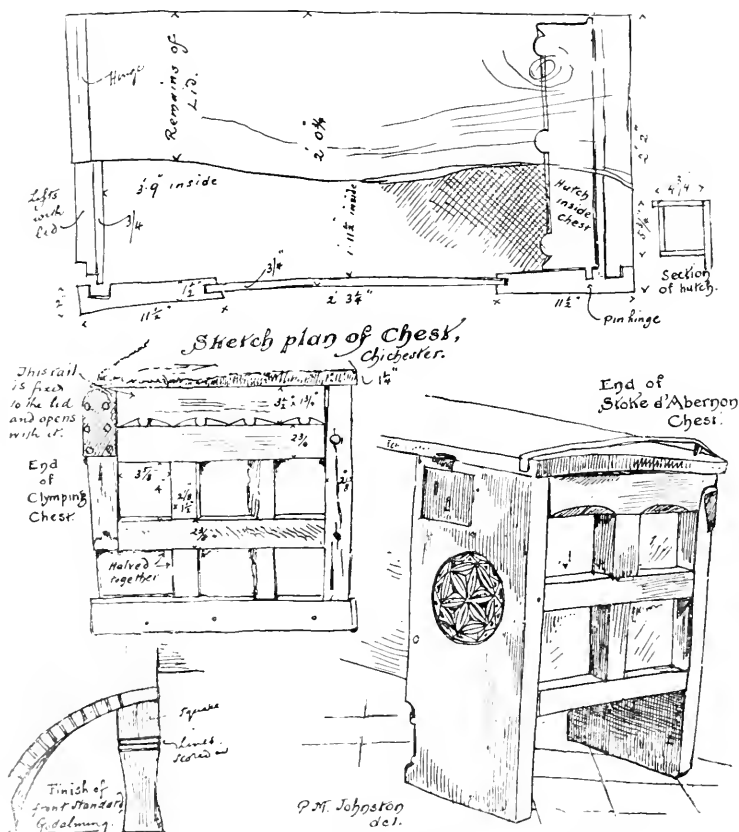 Hinge
Remains of
Lid.
2' 0 3/4"
3'·9" inside
Lifts
with
lid
3/4
1' 11 1/2" inside
Hutch
inside
Chest
4 3/4"
5 3/4"
Section
of hutch.
2"
1 1/2"
3/4"
11 1/2"
2' 3 1/4"
11 1/2"
Pin hinge
Sketch plan of Chest,
Chichester.
This rail
is fixed
to the lid
and opens
with it.
1 1/4"
3 1/2" x 1 3/4"
2 3/8
End
of
Clymping
Chest.
3 7/8
4"
Halved
together
End of
Stoke d'Abernon
Chest.
Square
Lines
scored
Finish of
front standard,
Godalming.
P.M. Johnston
del.